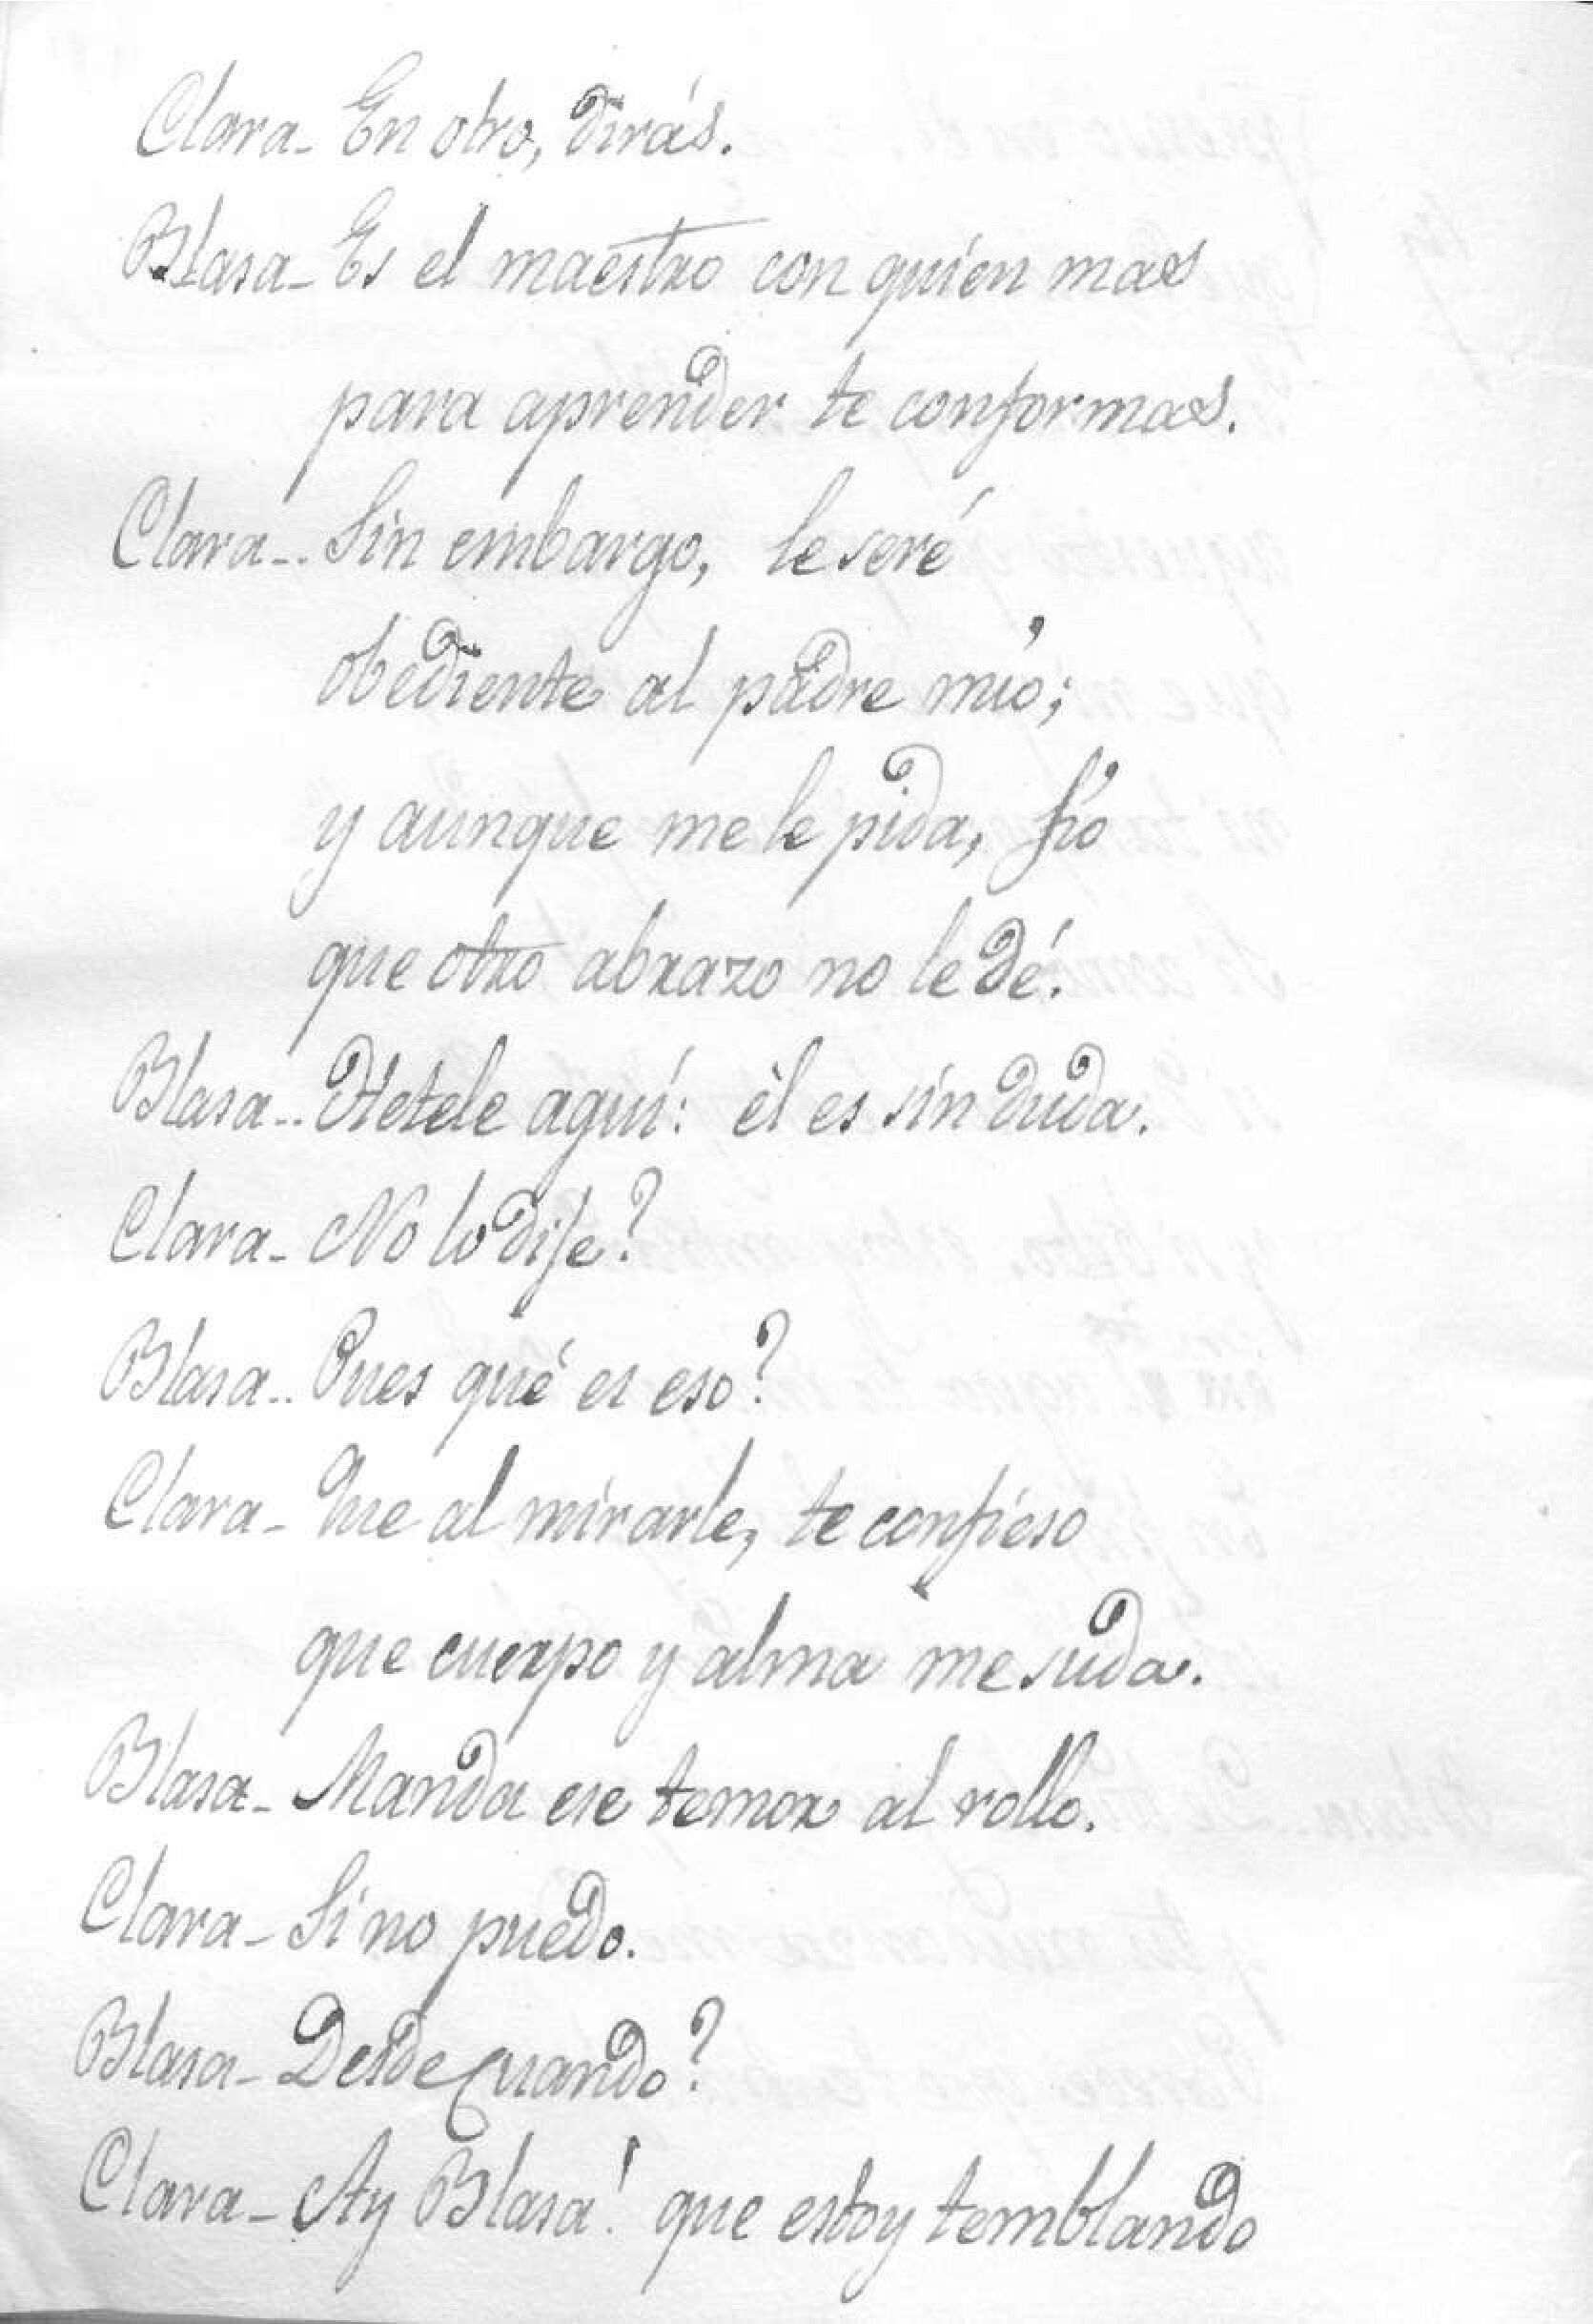 Clara - En otro, dirás.
Blasa - Es el maestro con quien mas
para aprender te conformas.
Clara - Sin embargo, le seré
obediente al padre mío;
y aunque me le pida, fío
que otro abrazo no le dé.
Blasa - Hetele aquí: èl es sin duda.
Clara - No lo dije?
Blasa - Pues qué es eso?
Clara - Que al mirarle, te confieso
que cuerpo y alma me suda.
Blasa - Manda ese temor al rollo.
Clara - Si no puedo.
Blasa - Desde Cuando?
Clara - Ay Blasa! que estoy temblando